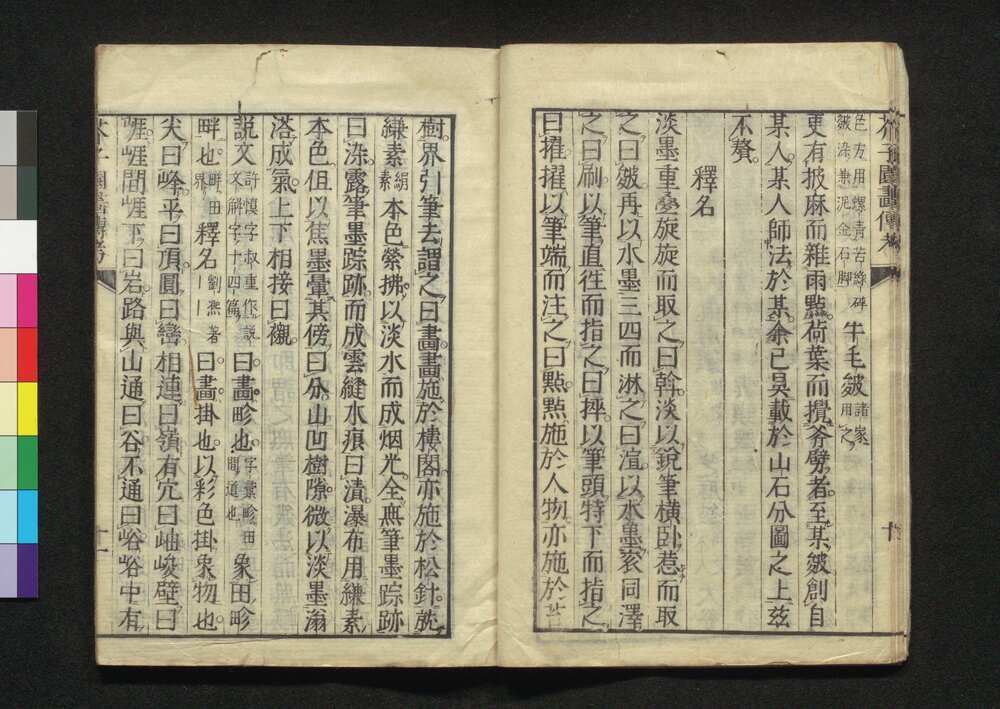 芥子園畫傳
十
色方用螺青苦綠碎
皴染兼泥金石脚
牛毛皴
諸家
用之
更有披麻而雜雨點荷葉而攪斧劈者至某皴創自
某人某人師法於某余已具載於山石分圖之上茲
不贅
釋名
淡墨重疊旋旋而取之曰幹淡以銳筆橫臥惹而取
之曰皴再以水墨三四而淋之曰渲以水墨袞同澤
之曰刷以筆直往而指之曰捽以筆頭特下而指之
曰擢擢以筆端而注之曰點點施於人物亦施於苔
樹界引筆去謂之曰畫畫施於樓閣亦施於松針就
縑素
絹
素
本色縈拂以淡水而成烟光全無筆墨踪跡
曰染露筆墨踪跡而成雲縫水痕曰漬瀑布用縑素
本色但以焦墨暈其傍曰分山凹樹隙微以淡墨滃
溶成氣上下相接曰襯
說文
許慎字叔重作說
文解字十四篇
曰畫畛也
字彙畛田
間道也
象田畛
畔也
畔田
界
釋名
劉熙著
曰畫掛也以彩色掛象物也
尖曰峰平曰頂圓曰巒相連曰嶺有穴曰岫峻壁曰
崖崖間崖下曰岩路與山通曰谷不通曰峪峪中有
芥子園畫傳
十一